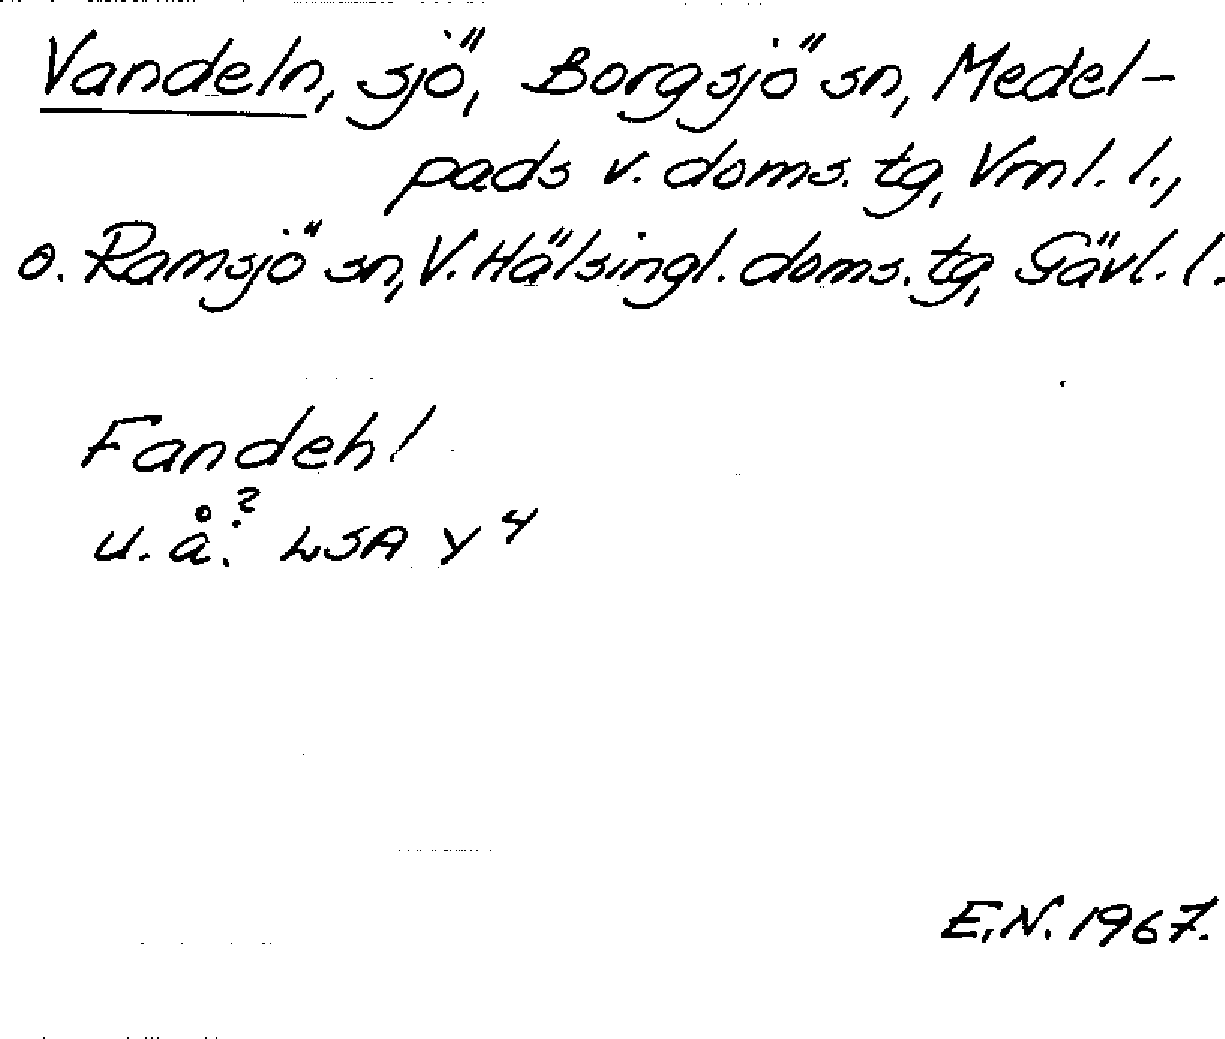 Vandeln, sjö, Borgsjö sn, Medel-
pads v. doms. tg, Vrnl. l.,
o. Ramsjö sn, V. Hälsingl. doms. tg, Gävl. l.
Fandeh!
u. å.? LSA Y 4
E.N. 1967.